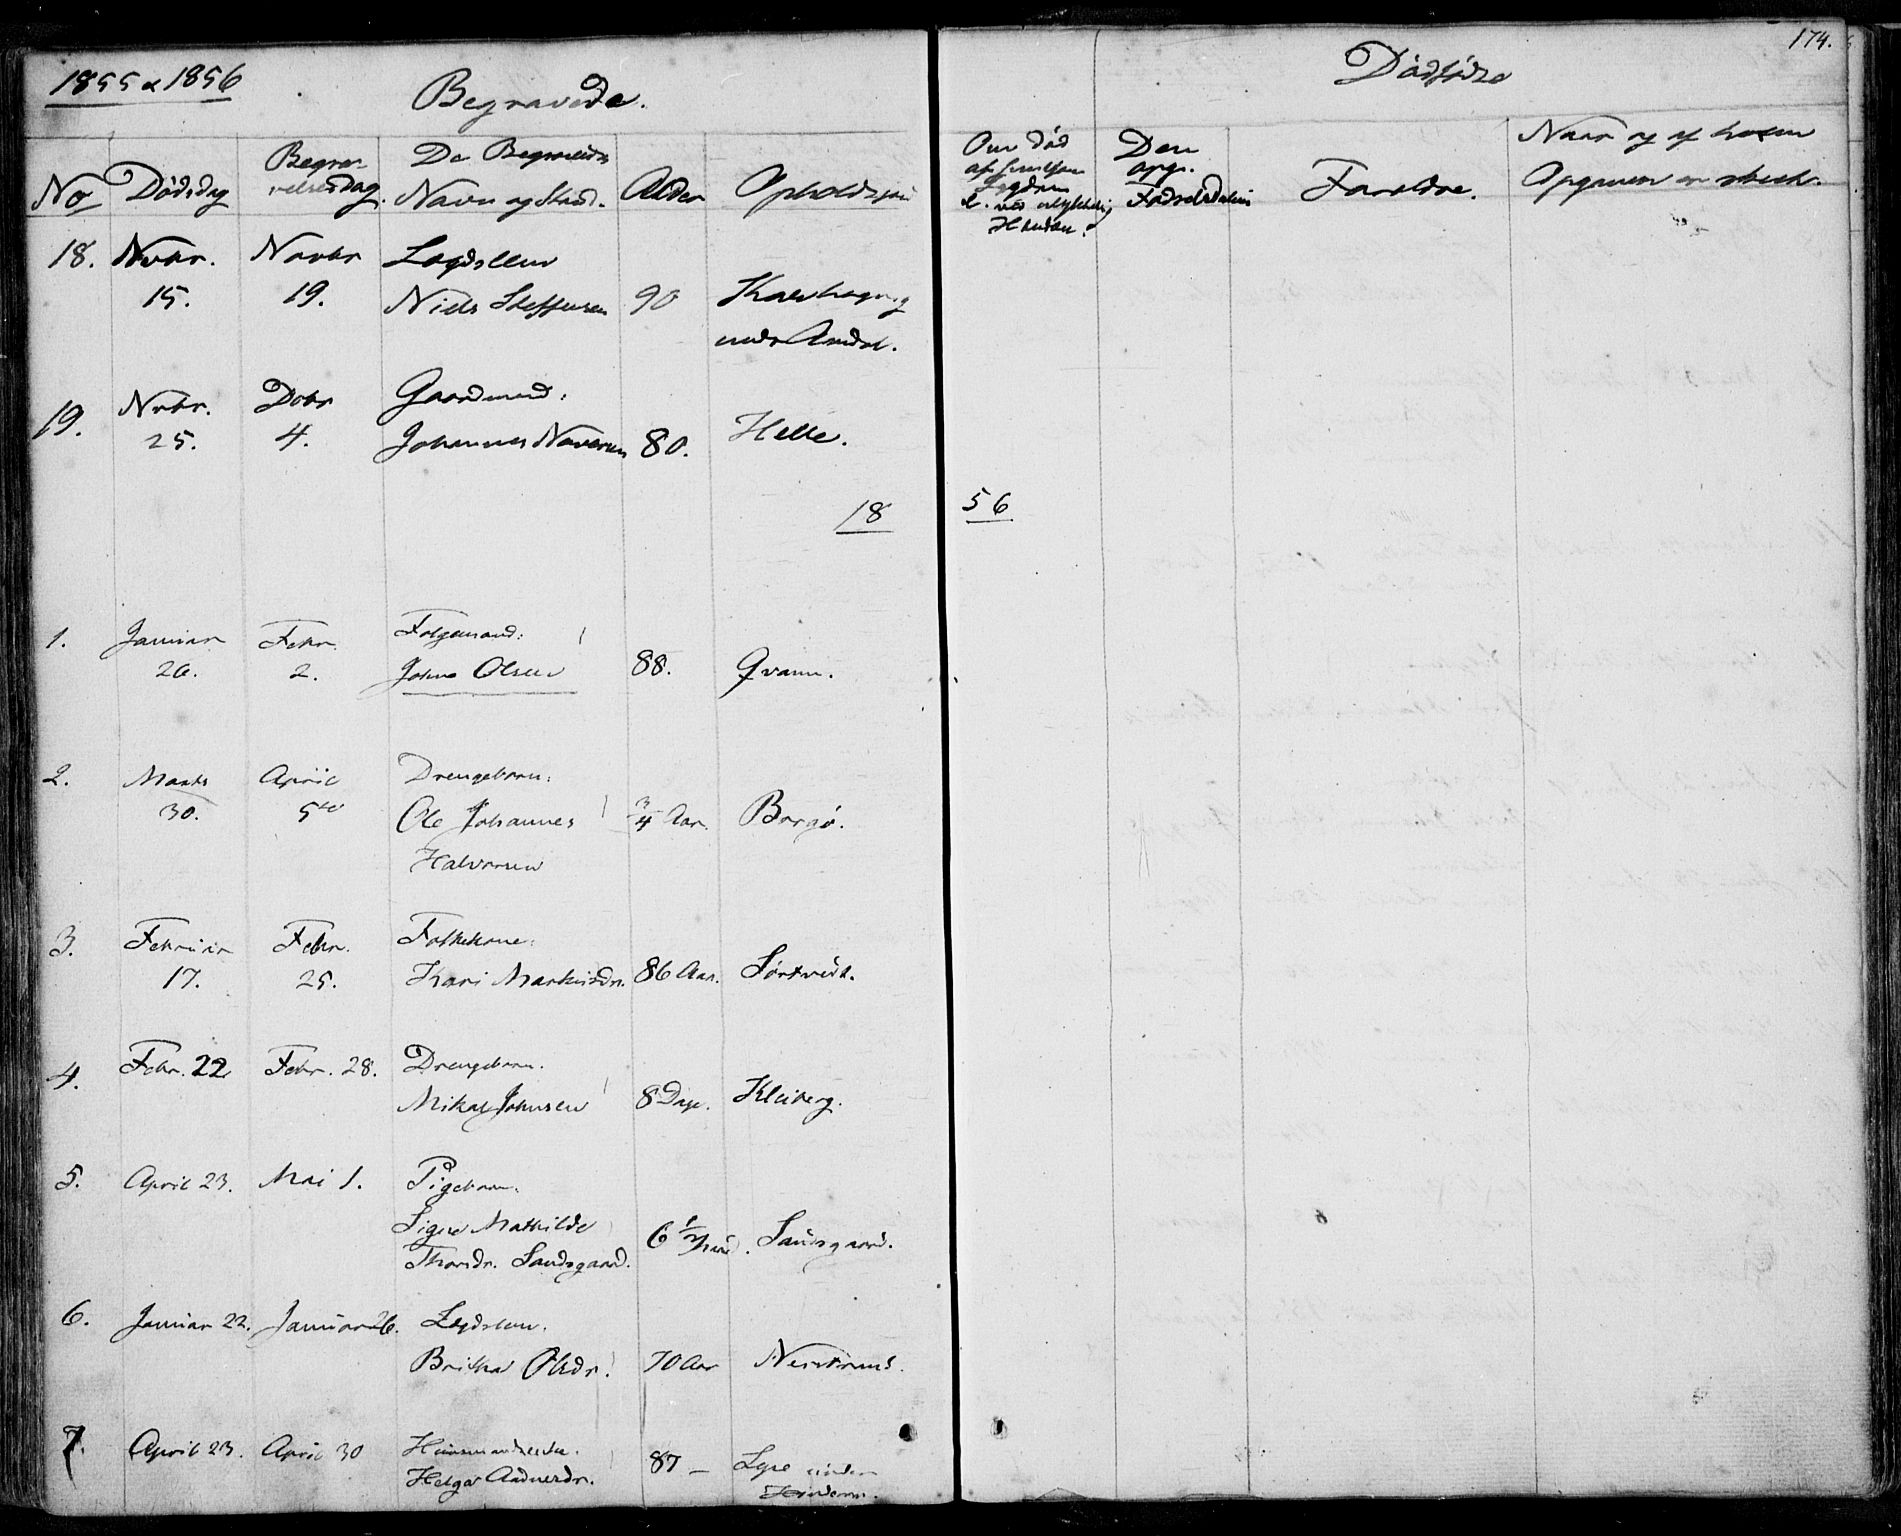 174.
1855 & 1856
Begravede.
Dødfødte
No
Dødsdag
Begra-
velsesdag.
De Begravedes
Navn og Stand.
Alder
Opholdssted
Om død
Sygdom
e. ved ulykkelig
Hændelse.
Den
opg.
Fødselsdatum
Forældre.
Naar og af hvem
Opgaven er skeet.
18. Novbr. Novbr Lægdslem
15. 19. Niels Steffensen 90
under
19. Novbr. Decbr Gaardmand:
25. 4. Johannes 80. Helle.
18 56
1. Januar Febr. Folgemand:
26. 2. Johne Olsen 88. Qvame.
2. Marts April Drengebarn:
30. 5te Ole Johannes 3/4 Aar. Borgø.
Halvorsen
3. Februar Febr. Folkekone:
17. 25. Kari Markusdr. 86 Aar. Sørtveit.
4. Febr. 22 Febr. 28. Drengebarn.
Mikal Johnsen 8 Dage. Kleiberg.
5. April 23. Mai 1. Pigebarn.
Signe Mathilde 6 1/2 Sandsgaard.
Thorsdr. Sandsgaard.
6. Januar 22. Januar 26. Lægdslem.
Britha Olsdr. 70 Aar
7. April 23. April 30 Huusmandsenke.
Helga Aadnesdr. 87 — under